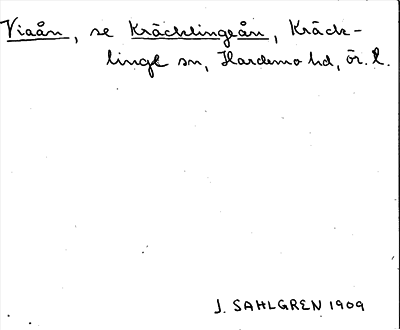 Viaån, se Kräcklingeån, Kräck-
linge sn, Hardemo hd, ör. l.
J. SAHLGREN 1909